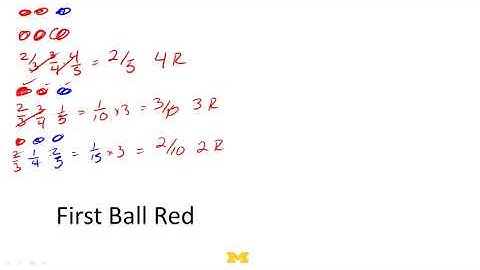 2/3 3/4 4/5 = 2/5 4 R
2/3 3/4 1/5 = 1/10 × 3 = 3/10 3 R
2/3 1/4 2/5 = 1/15 × 3 = 2/10 2 R
First Ball Red
M